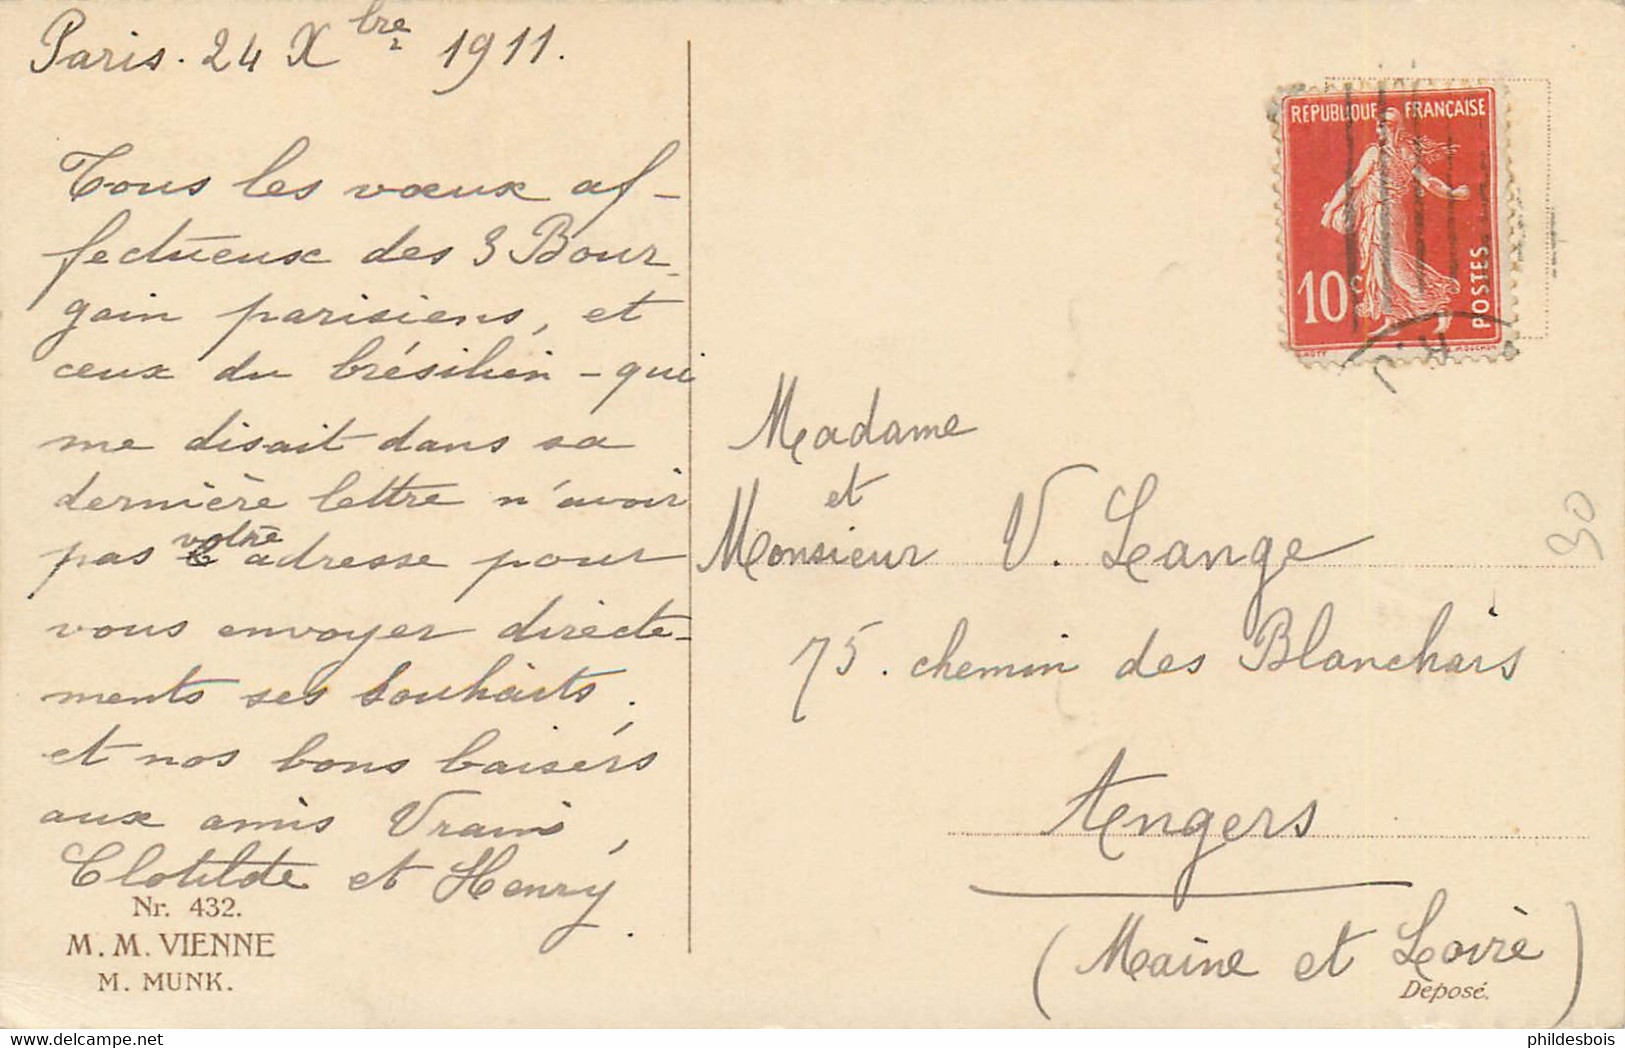 Paris. 24 Xbre 1911.
Tous les vœux af-
fectueux des 3 Bour-
gain parisiens, et
ceux du brésilien - qui
me disait dans sa
dernière lettre n'avoir
pas votre adresse pour
vous envoyer directe-
ments ses souhaits,
et nos bons baisers
aux amis Vrais,
Clotilde et Henry.
Nr. 432.
M. M. VIENNE
M. MUNK.
REPUBLIQUE FRANÇAISE
10c
POSTES
Madame
et
Monsieur V. Leange
75. chemin des Blanchais
Angers
(Maine et Loire)
Déposé.
30
phildesbois